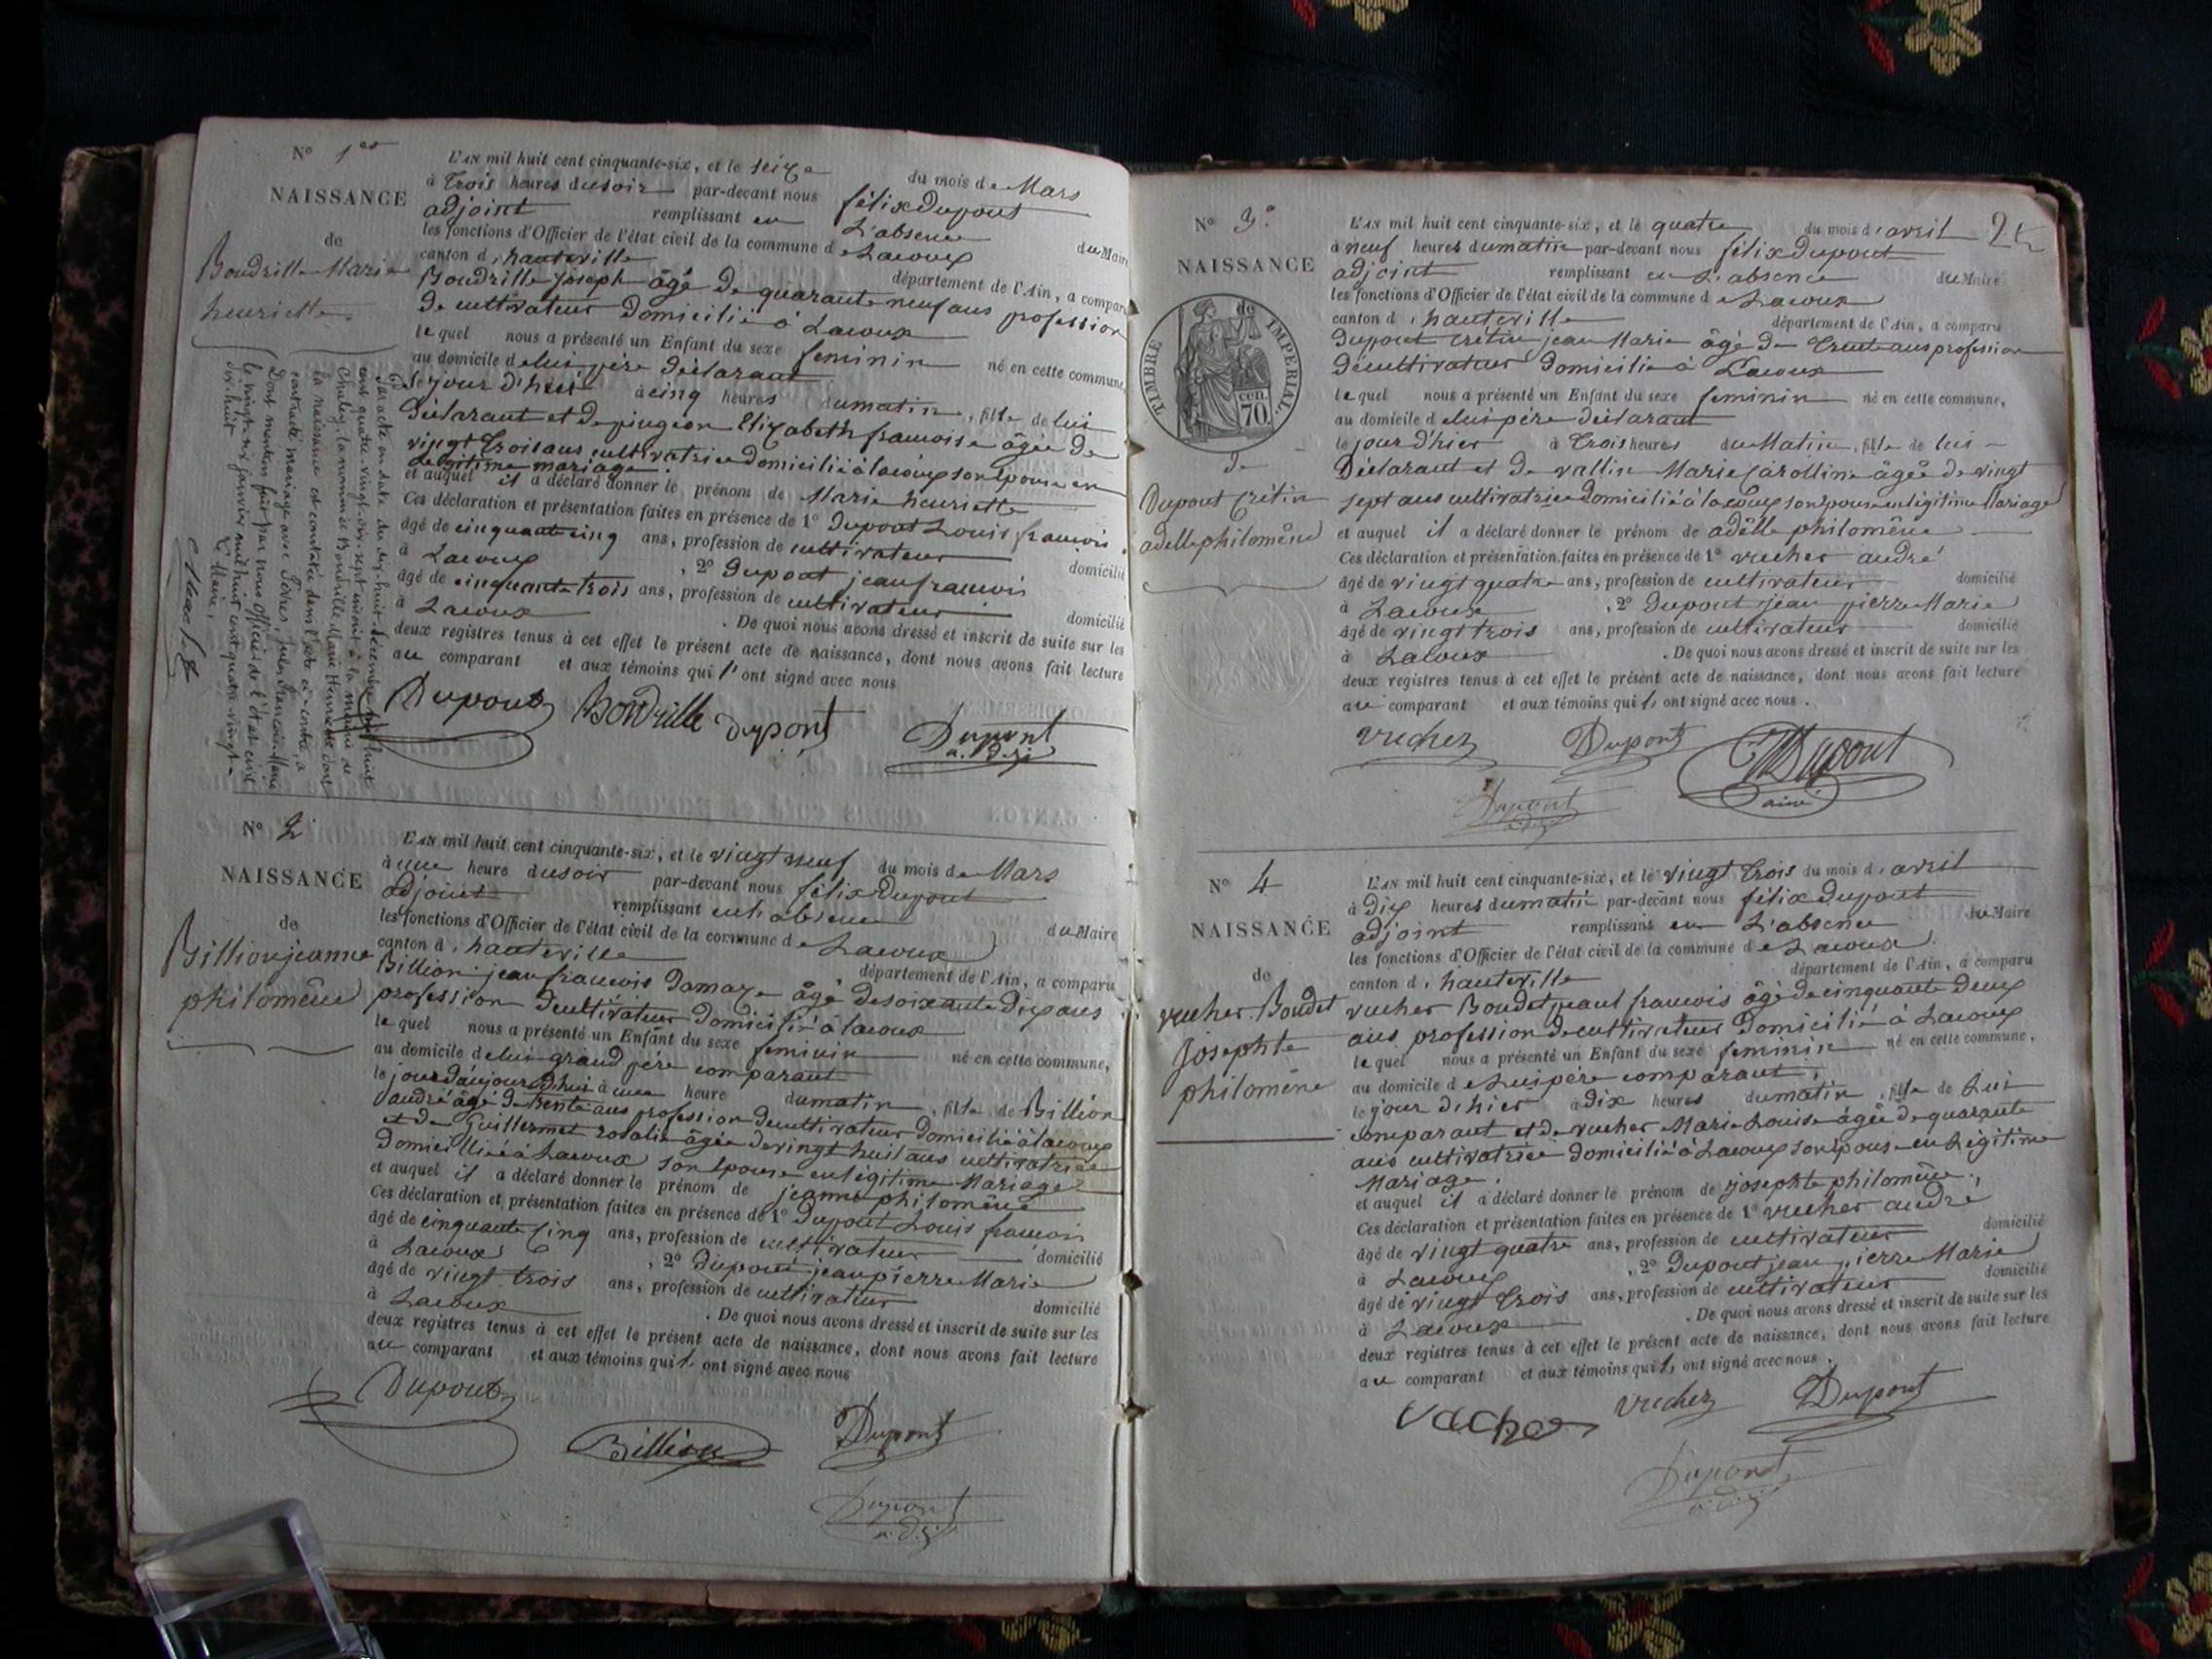 N° 1er
NAISSANCE
de
Boudrille Marie
henriette
L'AN mil huit cent cinquante-six, et le seize du mois de Mars
à trois heures du soir par-devant nous félix Dupont
adjoint remplissant en L'absence du Maire
les fonctions d'Officier de l'état civil de la commune de Lacoux
canton d'hauteville département de l'Ain, a comparu
Boudrille Joseph âgé de quarante neuf ans profession
de cultivateur domicilié à Lacoux
lequel nous a présenté un Enfant du sexe feminin né en cette commune,
au domicile de lui père déclarant
le jour d'hui à cinq heures du matin, fille de lui
déclarant et de pingeon Elizabeth francoise âgée de
vingt trois ans cultivatrice domicilié à lacoux son épouse en
légitime mariage
et auquel il a déclaré donner le prénom de Marie henriette
Ces déclaration et présentation faites en présence de 1° Dupont Louis francois
âgé de cinquante cinq ans, profession de cultivateur domicilié
à Lacoux , 2° Dupont jean francois
âgé de cinquante trois ans, profession de cultivateur domicilié
à Lacoux . De quoi nous avons dressé et inscrit de suite sur les
deux registres tenus à cet effet le présent acte de naissance, dont nous avons fait lecture
au comparant et aux témoins qui l'ont signé avec nous
Dupont Bondrille Dupont Dupont
a.d.j
Par acte en date du dix-huit décembre mil huit
cent quatre-vingt-dix-sept inscrit à la mairie de
Chaley, la nommée Bondrille Marie Henriette dont
la naissance est constatée dans l'acte ci-contre, a
contracté mariage avec Jules Francois Marie
Dont mention faite par nous officier de l'état civil
le vingt-six janvier mil huit cent quatre-vingt-
dix-huit
Le Maire,
N° 2
NAISSANCE
de
Billion jeanne
philomène
L'AN mil huit cent cinquante-six, et le vingt neuf du mois de Mars
à une heure du soir par-devant nous félix Dupont
adjoint remplissant en l'absence du Maire
les fonctions d'Officier de l'état civil de la commune de Lacoux
canton d'hauteville , département de l'Ain, a comparu
Billion jean francois Damaze âgé de soixante dix ans
profession de cultivateur domicilié à lacoux
lequel nous a présenté un Enfant du sexe feminin né en cette commune,
au domicile de lui grand père comparant
le jour d'aujourd'hui à une heure du matin, fille de Billion
andré âgé de trente ans profession de cultivateur domicilié à lacoux
et de Guillermet rosalie âgée de vingt huit ans cultivatrice
domicilliée à Lacoux son épouse en légitime Mariage
et auquel il a déclaré donner le prénom de jeanne philomène
Ces déclaration et présentation faites en présence de 1° Dupont Louis francois
âgé de cinquante cinq ans, profession de cultivateur domicilié
à Lacoux , 2° Dupont jean pierre Marie
âgé de vingt trois ans, profession de cultivateur domicilié
à Lacoux . De quoi nous avons dressé et inscrit de suite sur les
deux registres tenus à cet effet le présent acte de naissance, dont nous avons fait lecture
au comparant et aux témoins qui l'ont signé avec nous
Dupont Billion Dupont
Dupont
a.d.j
N° 3°
NAISSANCE
TIMBRE IMPERIAL
cen. 70
de
Dupont Crétin
adelle philomène
L'AN mil huit cent cinquante-six, et le quatre du mois d'avril 2
à neuf heures du matin par-devant nous félix Dupont
adjoint remplissant en L'absence du Maire
les fonctions d'Officier de l'état civil de la commune de Lacoux
canton d'hauteville département de l'Ain, a comparu
Dupont crétin jean Marie âgé de trente ans profession
de cultivateur domicilié à Lacoux
lequel nous a présenté un Enfant du sexe feminin né en cette commune,
au domicile de lui père déclarant
le jour d'hier à trois heures du Matin, fille de lui
déclarant et de vallin Marie Carolline âgée de vingt
sept ans cultivatrice domicilié à lacoux son épouse en légitime Mariage
et auquel il a déclaré donner le prénom de adèlle philomène
Ces déclaration et présentation faites en présence de 1° vucher andré
âgé de vingt quatre ans, profession de cultivateur domicilié
à Lacoux , 2° Dupont jean pierre Marie
âgé de vingt trois ans, profession de cultivateur domicilié
à Lacoux . De quoi nous avons dressé et inscrit de suite sur les
deux registres tenus à cet effet le présent acte de naissance, dont nous avons fait lecture
au comparant et aux témoins qui l'ont signé avec nous.
Vucher Dupont Dupont
ainé
Dupont
a.d.j
N° 4
NAISSANCE
de
vucher Boudet
Josephte
philomène
L'AN mil huit cent cinquante-six, et le vingt trois du mois d'avril
à dix heures du matin par-devant nous félix Dupont
adjoint remplissant en L'absence du Maire
les fonctions d'Officier de l'état civil de la commune de Lacoux
canton d'hauteville département de l'Ain, a comparu
vucher Boudet jeant francois âgé de cinquante deux
ans profession de cultivateur domicilié à Lacoux
lequel nous a présenté un Enfant du sexe feminin né en cette commune,
au domicile de Lui père comparant,
le jour d'hier à dix heures du matin, fille de Lui
comparant et de vucher Marie Louise âgée de quarante
ans cultivatrice domicilié à Lacoux son épouse en Légitime
Mariage.
et auquel il a déclaré donner le prénom de josephte philomène,
Ces déclaration et présentation faites en présence de 1° vucher andré
âgé de vingt quatre ans, profession de cultivateur domicilié
à Lacoux , 2° Dupont jean pierre Marie
âgé de vingt trois ans, profession de cultivateur domicilié
à Lacoux . De quoi nous avons dressé et inscrit de suite sur les
deux registres tenus à cet effet le présent acte de naissance, dont nous avons fait lecture
au comparant et aux témoins qui l'ont signé avec nous.
Vucher Vucher Dupont
Dupont
a.d.j